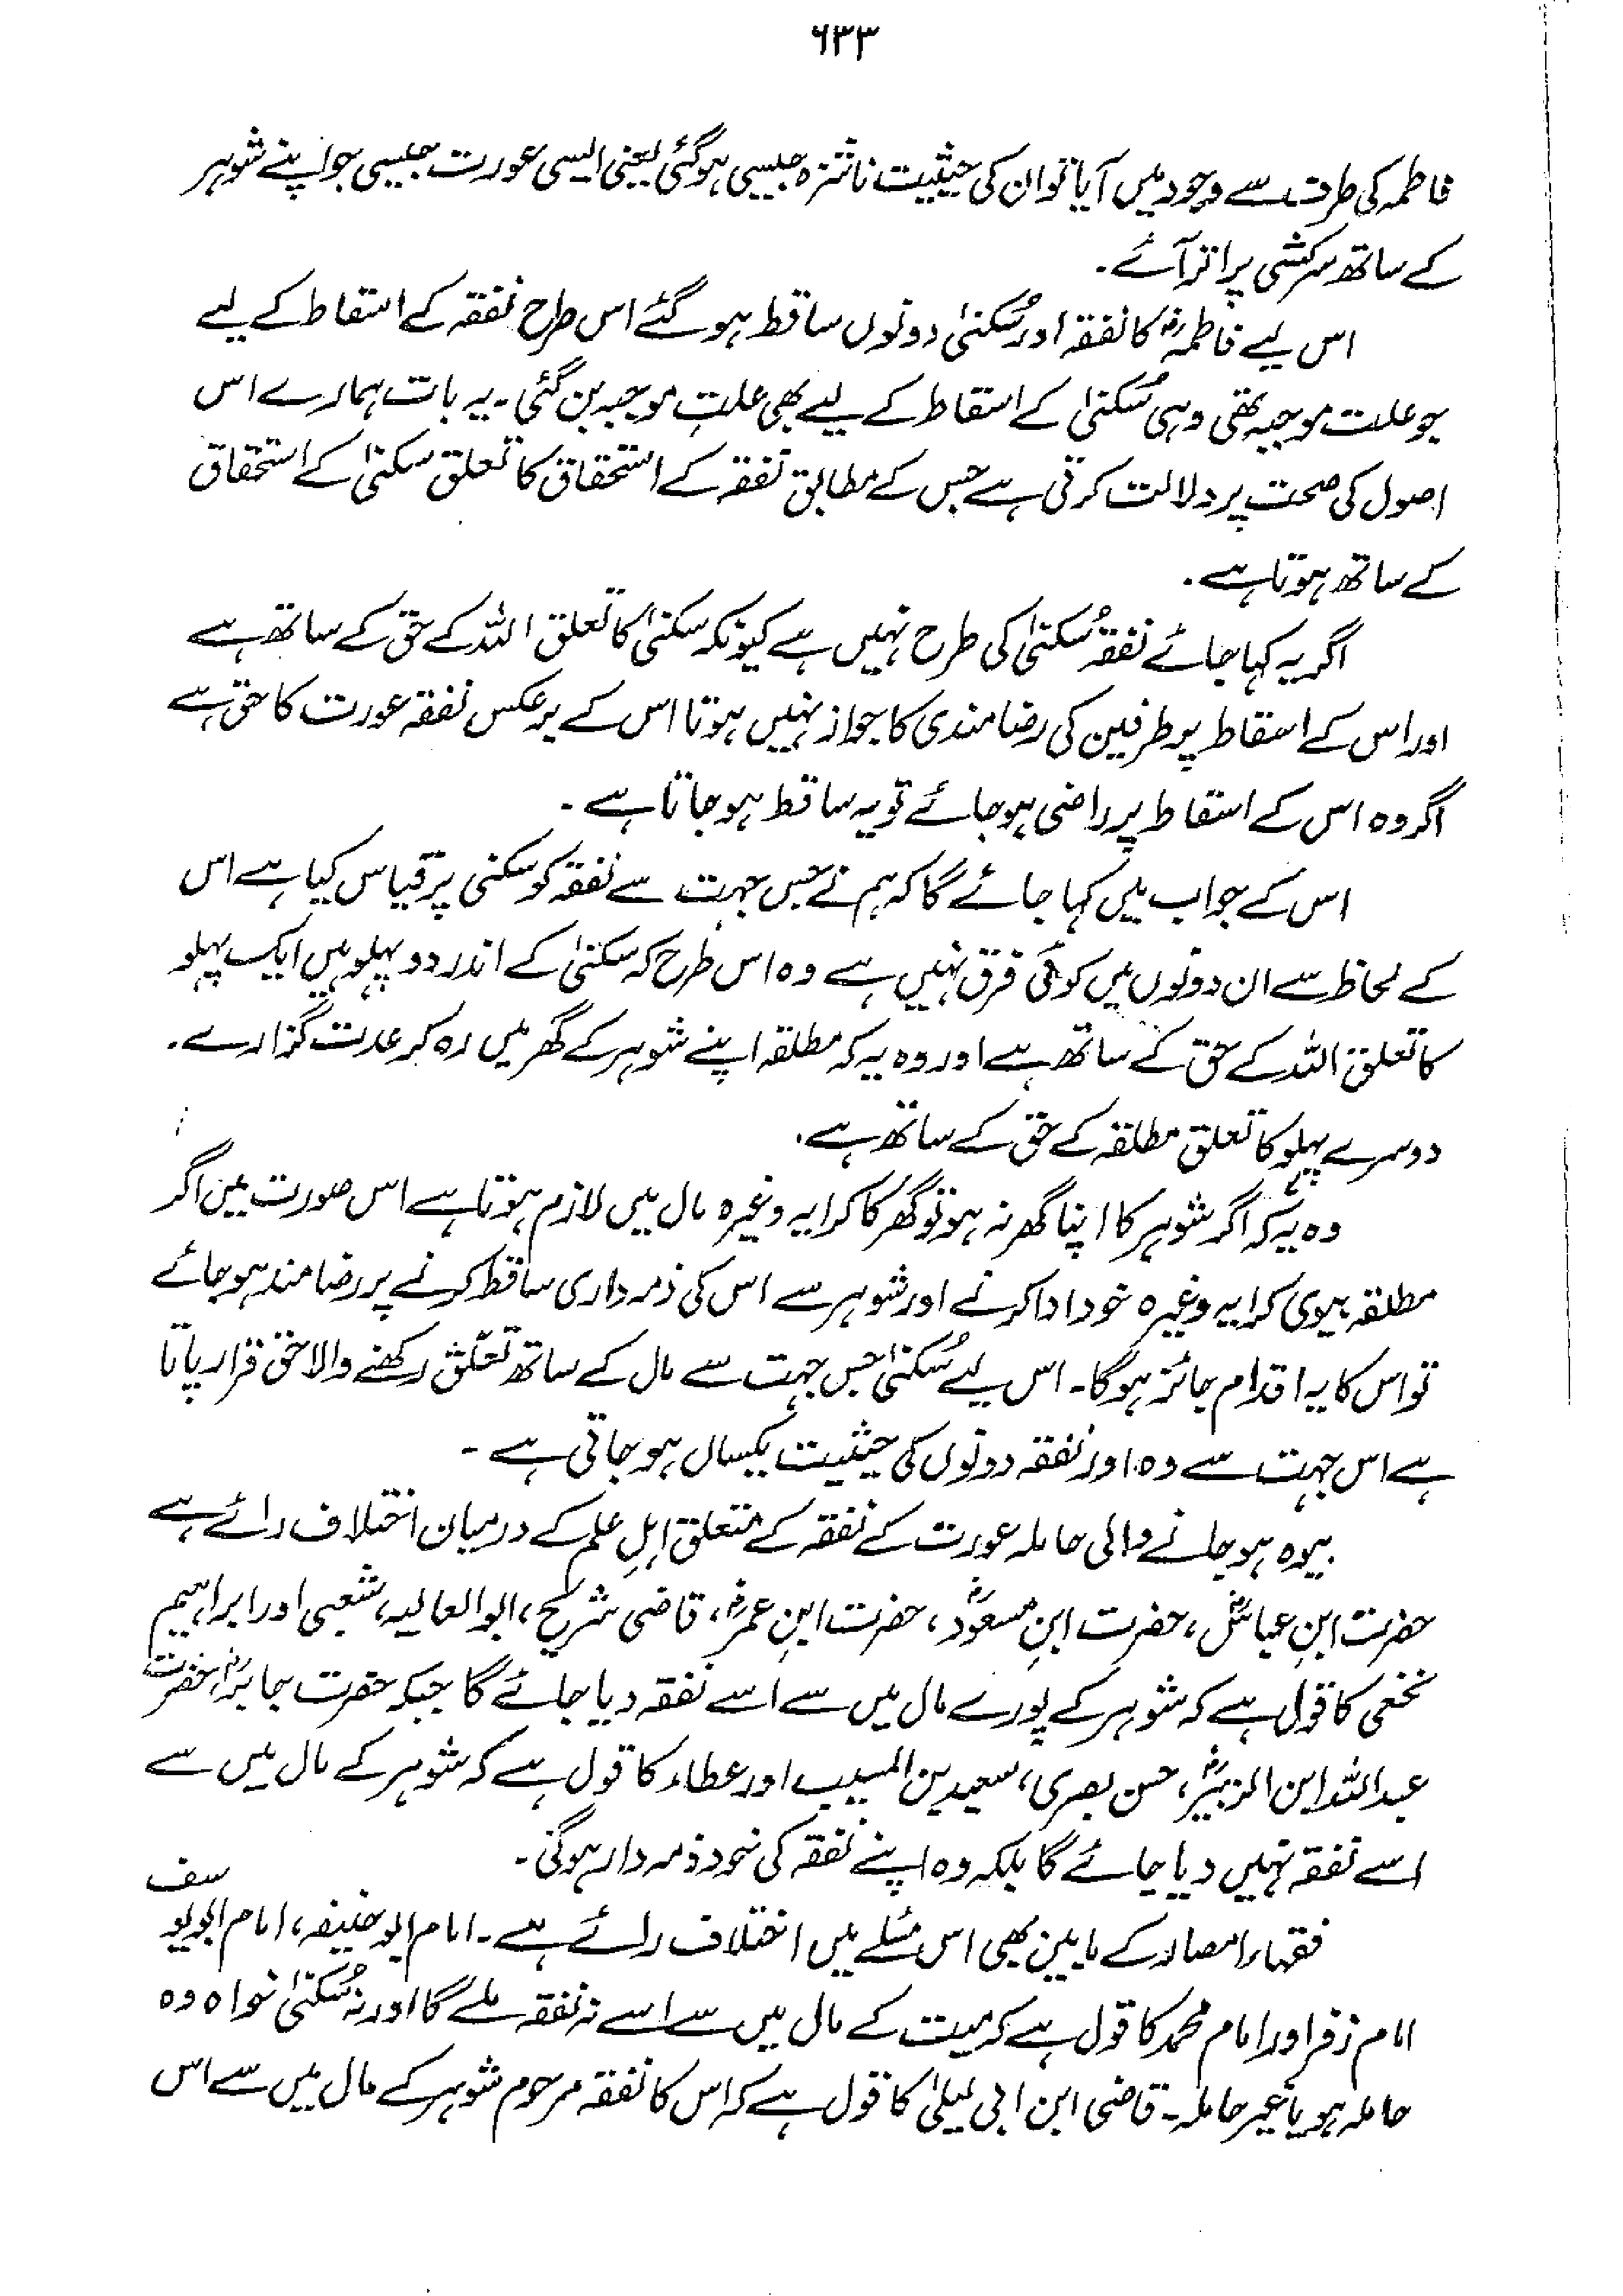 ۶۳۳
فاطمہ کی طرف سے وجود میں آیا تو ان کی حیثیت ناشزہ جیسی ہو گئی یعنی ایسی عورت جیسی جو اپنے شوہر
کے ساتھ سرکشی پر اتر آئے۔
اس لیے فاطمہؓ کا نفقہ اور سُکنیٰ دونوں ساقط ہو گئے اس طرح نفقہ کے اسقاط کے لیے
جو علت موجبہ تھی وہی سُکنیٰ کے اسقاط کے لیے بھی علتِ موجبہ بن گئی۔ یہ بات ہمارے اس
اصول کی صحت پر دلالت کرتی ہے جس کے مطابق نفقہ کے استحقاق کا تعلق سکنیٰ کے استحقاق
کے ساتھ ہوتا ہے۔
اگر یہ کہا جائے نفقہ سُکنیٰ کی طرح نہیں ہے کیونکہ سکنیٰ کا تعلق اللہ کے حق کے ساتھ ہے
اور اس کے اسقاط پر طرفین کی رضامندی کا جواز نہیں ہوتا اس کے برعکس نفقہ عورت کا حق ہے
اگر وہ اس کے اسقاط پر راضی ہو جائے تو یہ ساقط ہو جاتا ہے۔
اس کے جواب میں کہا جائے گا کہ ہم نے جس جہت سے نفقہ کو سکنی پر قیاس کیا ہے اس
کے لحاظ سے ان دونوں میں کوئی فرق نہیں ہے وہ اس طرح کہ سکنیٰ کے اندر دو پہلو ہیں ایک پہلو
کا تعلق اللہ کے حق کے ساتھ ہے اور وہ یہ کہ مطلقہ اپنے شوہر کے گھر میں رہ کر عدت گزارے۔
دوسرے پہلو کا تعلق مطلقہ کے حق کے ساتھ ہے۔
وہ یہ کہ اگر شوہر کا اپنا گھر نہ ہو تو گھر کا کرایہ وغیرہ مال میں لازم ہوتا ہے اس صورت میں اگر
مطلقہ بیوی کرایہ وغیرہ خود ادا کرنے اور شوہر سے اس کی ذمہ داری ساقط کرنے پر رضامند ہو جائے
تو اس کا یہ اقدام جائز ہو گا۔ اس لیے سُکنیٰ جس جہت سے مال کے ساتھ تعلّق رکھنے والا حق قرار پاتا
ہے اس جہت سے وہ اور نفقہ دونوں کی حیثیت یکساں ہو جاتی ہے۔
بیوہ ہو جانے والی حاملہ عورت کے نفقہ کے متعلق اہلِ علم کے درمیان اختلاف رائے ہے
حضرت ابنِ عباسؓ، حضرت ابنِ مسعودؓ، حضرت ابنِ عمرؓ، قاضی شریح، ابوالعالیہ، شعبی اور ابراہیم
نخعی کا قول ہے کہ شوہر کے پورے مال میں سے اسے نفقہ دیا جائے گا جبکہ حضرت جابرؓ، حضرت
عبداللہ ابن الزبیرؓ، حسن بصری، سعید بن المسیب اور عطاء کا قول ہے کہ شوہر کے مال میں سے
اسے نفقہ نہیں دیا جائے گا بلکہ وہ اپنے نفقہ کی خود ذمہ دار ہو گی۔
فقہاء امصار کے مابین بھی اس مسئلے میں اختلاف رائے ہے۔ امام ابوحنیفہ، امام ابویوسف
امام زفر اور امام محمد کا قول ہے کہ میت کے مال میں سے اسے نہ نفقہ ملے گا اور نہ سُکنیٰ خواہ وہ
حاملہ ہو یا غیر حاملہ۔ قاضی ابن ابی لیلیٰ کا قول ہے کہ اس کا نفقہ مرحوم شوہر کے مال میں سے اس